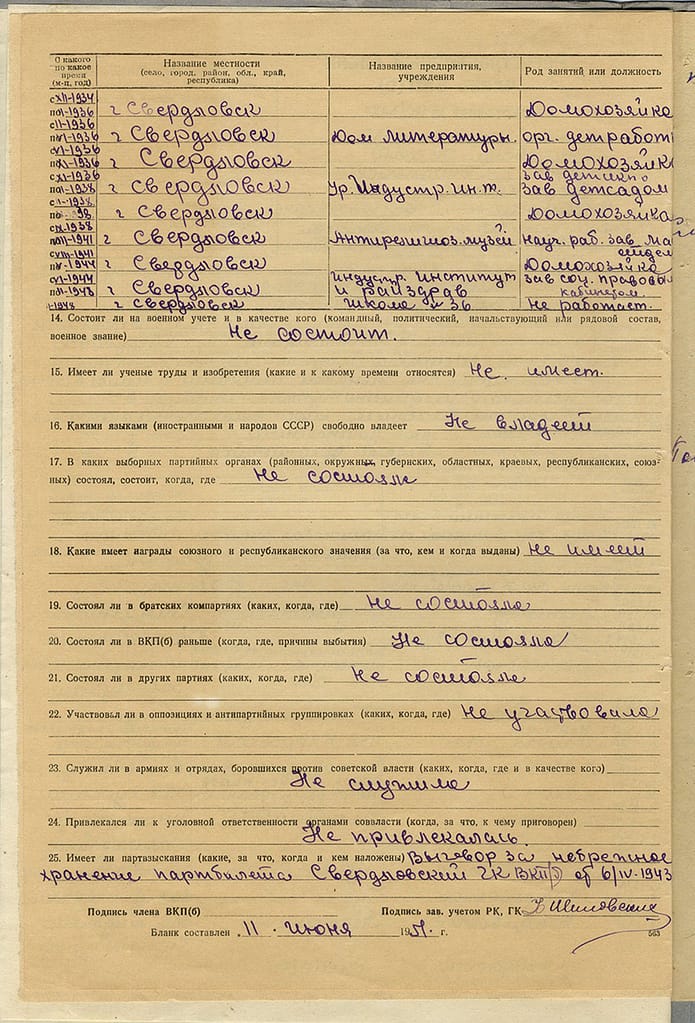 С какого по какое время (м-ц, год) Название местности (село, город, район, обл., край, республика) Название предприятия, учреждения Род занятий или должность
с XII-1934
по II-1936 г Свердловск Домохозяйка
с II-1936
по VI-1936 г Свердловск Дом литературы. орг. детработ
с VI-1936
по XI-1936 г Свердловск Домохозяйка
с XI-1936 зав детскир
по II-1938 г Свердловск Ур. Индустр. ин.т. зав детсадом
по 38 г Свердловск Домохозяйка
с IX-1938
по VII-1941 г Свердловск Антирелигиоз. музей науч. раб. зав
с VIII-1941
по V-1944 г Свердловск Домохозяйка
с VI-1944 индустр. институт зав соц. правовы
по II-1948 г Свердловск и райздрав кабинетом.
-1948 г Свердловск школа № 36 Не работает.
14. Состоит ли на военном учете и в качестве кого (командный, политический, начальствующий или рядовой состав,
военное звание) Не состоит.
15. Имеет ли ученые труды и изобретения (какие и к какому времени относятся) Не имеет.
16. Какими языками (иностранными и народов СССР) свободно владеет Не владеет
17. В каких выборных партийных органах (районных, окружных, губернских, областных, краевых, республиканских, союз-
ных) состоял, состоит, когда, где Не состояла
18. Какие имеет награды союзного и республиканского значения (за что, кем и когда выданы) Не имеет
19. Состоял ли в братских компартиях (каких, когда, где) Не состояла
20. Состоял ли в ВКП(б) раньше (когда, где, причины выбытия) Не состояла
21. Состоял ли в других партиях (каких, когда, где) Не состояла
22. Участвовал ли в оппозициях и антипартийных группировках (каких, когда, где) Не участвовала
23. Служил ли в армиях и отрядах, боровшихся против советской власти (каких, когда, где и в качестве кого)
Не служила
24. Привлекался ли к уголовной ответственности органами соввласти (когда, за что, к чему приговорен)
Не привлекалась.
25. Имеет ли партвзыскания (какие, за что, когда и кем наложены) Выговор за небрежное
хранение партбилета Свердловский ГК ВКП(б) от 6/IV-1943
Подпись члена ВКП(б) Подпись зав. учетом РК, ГК
Бланк составлен „11 июня 1951 г.
563